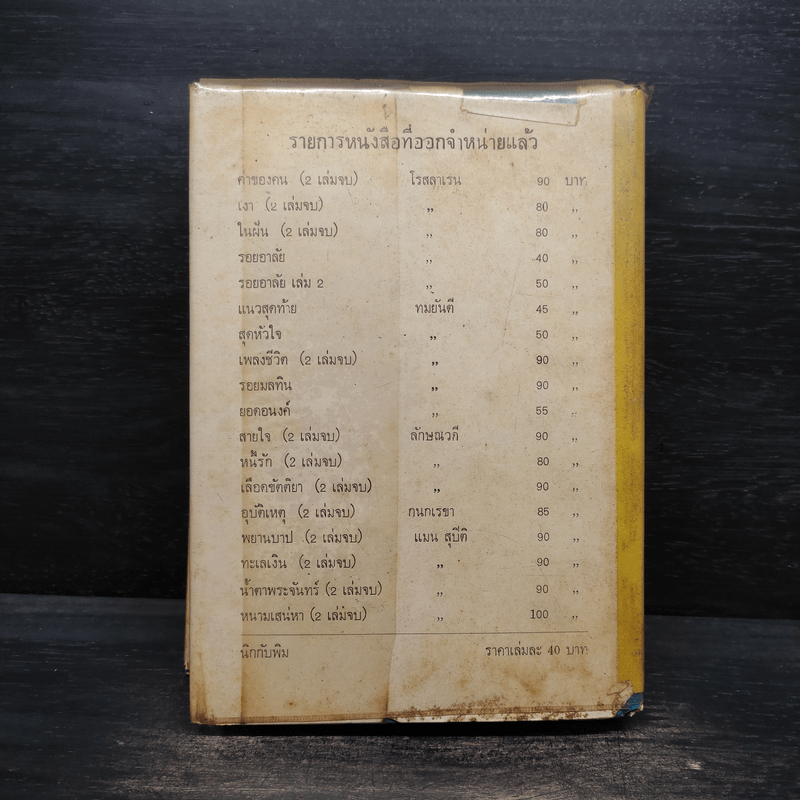 รายการหนังสือที่ออกจำหน่ายแล้ว
ค่าของคน (2 เล่มจบ) โรสลาเรน 90 บาท
เงา (2 เล่มจบ) „ 80 „
ในฝัน (2 เล่มจบ) „ 80 „
รอยอาลัย „ 40 „
รอยอาลัย เล่ม 2 „ 50 „
แนวสุดท้าย ทมยันตี 45 „
สุดหัวใจ „ 50 „
เพลงชีวิต (2 เล่มจบ) „ 90 „
รอยมลทิน „ 90 „
ยอดอนงค์ „ 55 „
สายใจ (2 เล่มจบ) ลักษณวดี 90 „
หนี้รัก (2 เล่มจบ) „ 80 „
เลือดขัตติยา (2 เล่มจบ) „ 90 „
อุบัติเหตุ (2 เล่มจบ) กนกเรขา 85 „
พยานบาป (2 เล่มจบ) แมน สุปิติ 90 „
ทะเลเงิน (2 เล่มจบ) „ 90 „
น้ำตาพระจันทร์ (2 เล่มจบ) „ 90 „
หนามเสน่หา (2 เล่มจบ) „ 100 „
นิกกับพิม ราคาเล่มละ 40 บาท